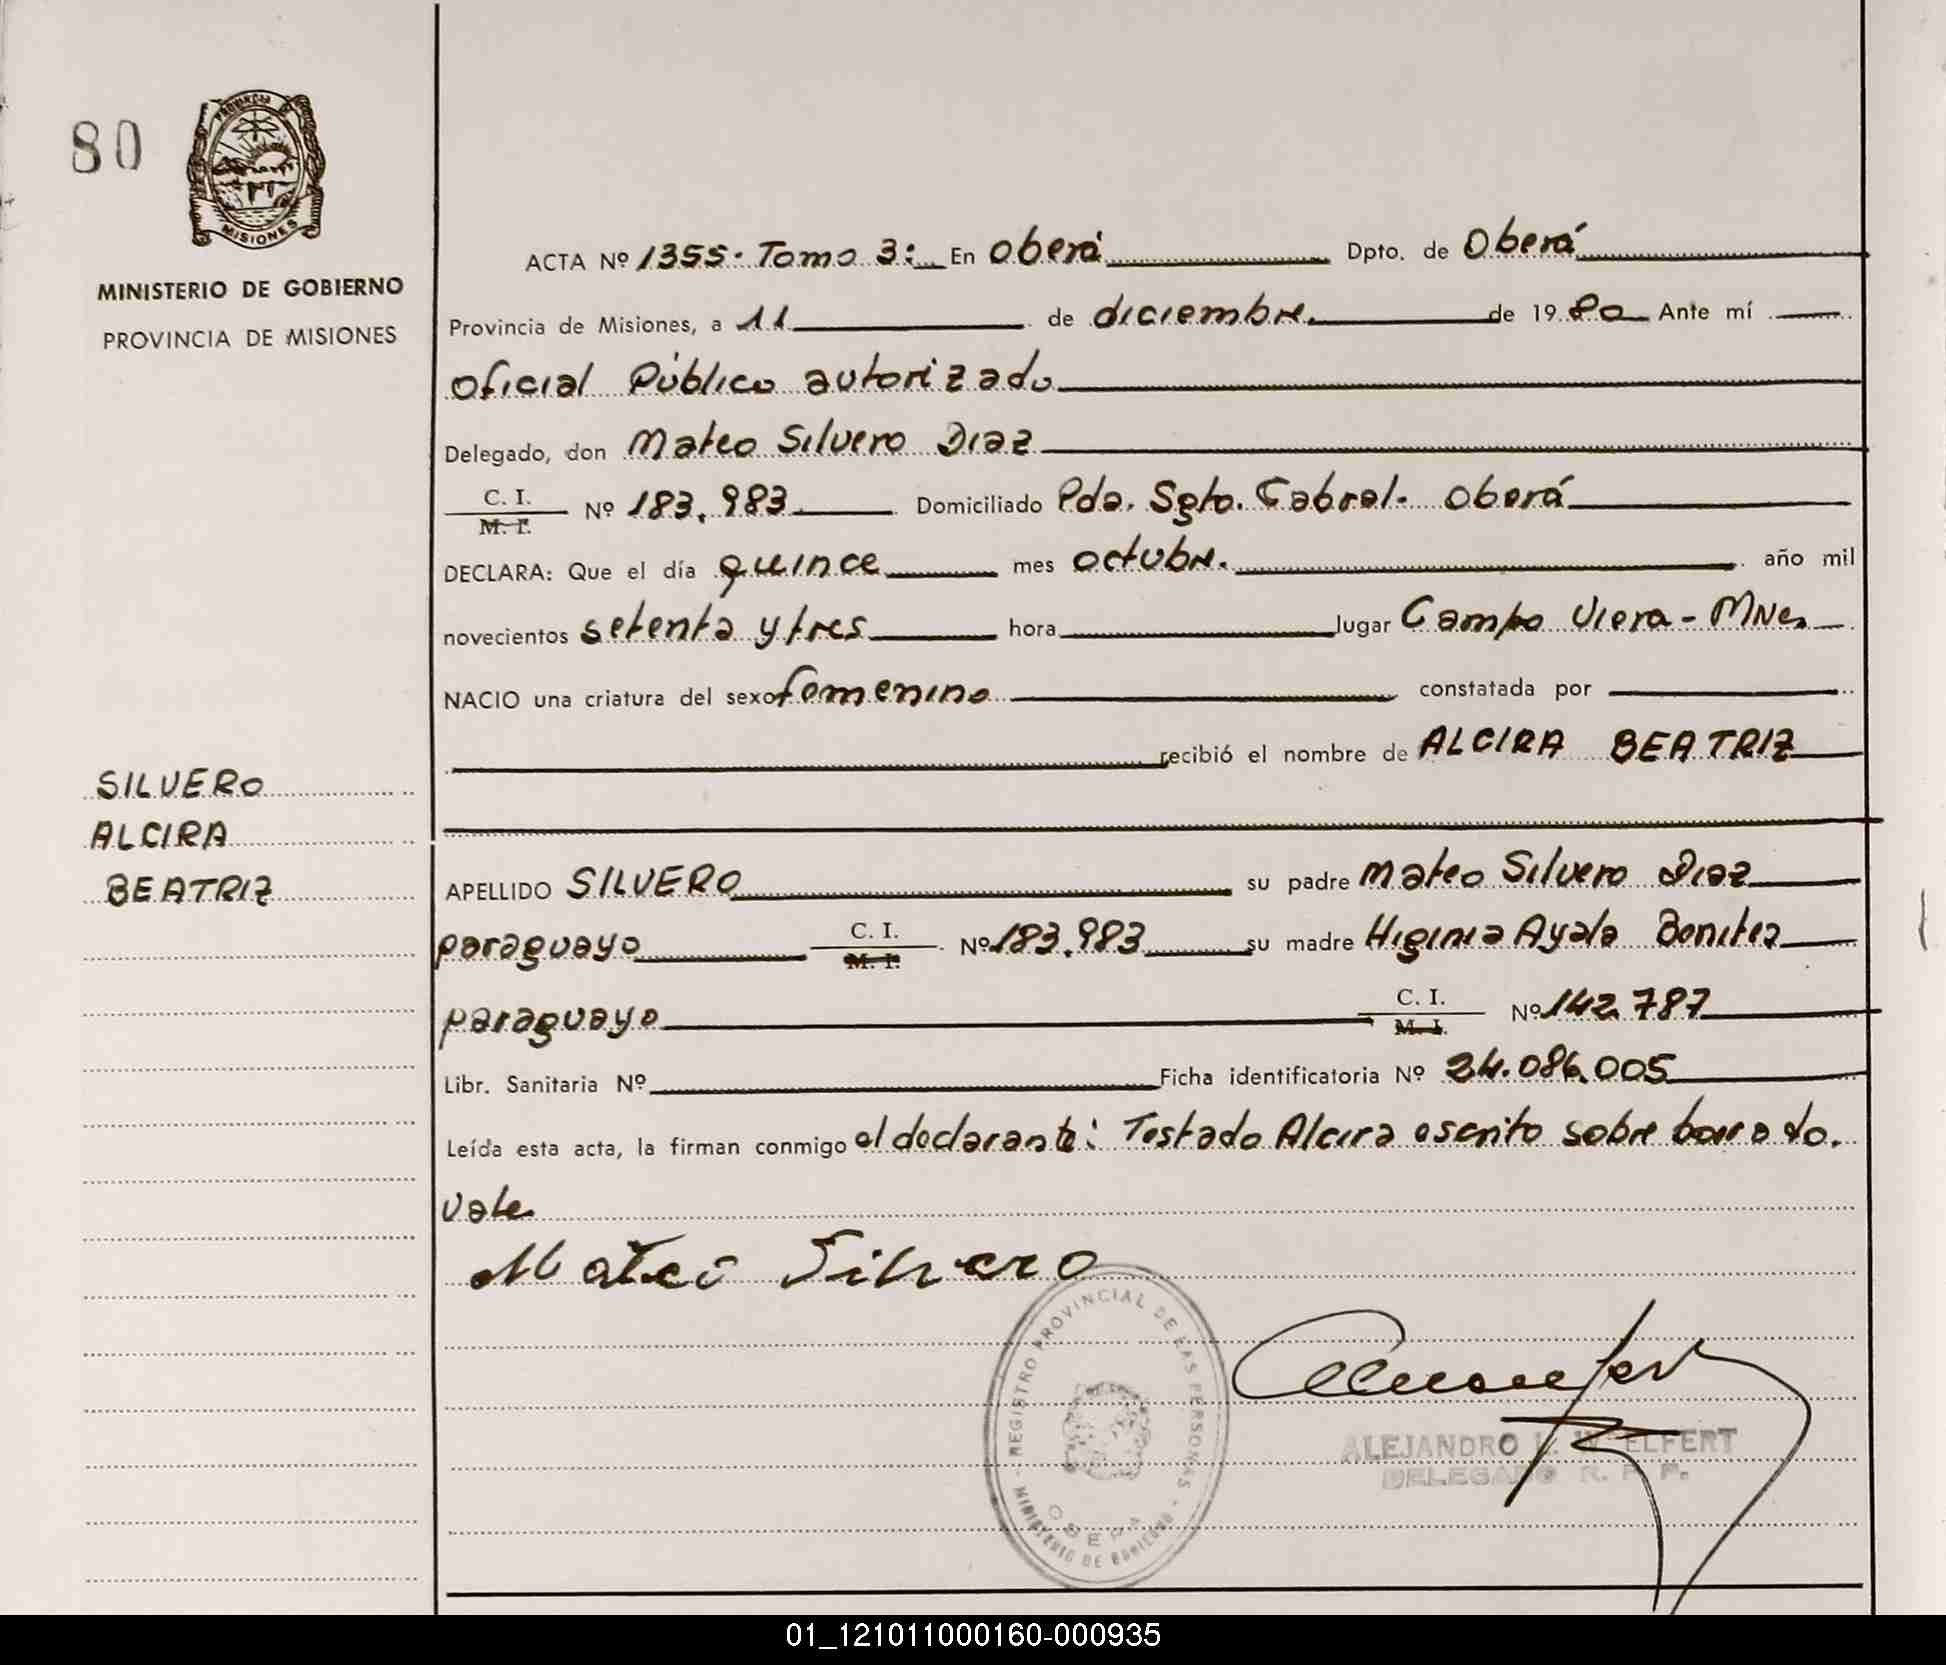 80
PROVINCIA
MISIONES
MINISTERIO DE GOBIERNO
PROVINCIA DE MISIONES
ACTA Nº 1355. Tomo 3: En Oberá Dpto. de Oberá
Provincia de Misiones, a 11 de diciembre. de 1980 Ante mí
oficial Público autorizado
Delegado, don Mateo Silvero Diaz
C. I.
M. I. Nº 183.983 Domiciliado Pda. Sgto. Cabral. Oberá
DECLARA: Que el día quince mes octubre. año mil
novecientos setenta y tres hora lugar Campo Viera - Mnes
NACIO una criatura del sexo femenino constatada por
recibió el nombre de ALCIRA BEATRIZ
SILVERO
ALCIRA
BEATRIZ
APELLIDO SILVERO su padre Mateo Silvero Diaz
paraguayo C. I. M. I. Nº 183.983 su madre Higinia Ayala Benitez
paraguayo C. I. M. I. Nº 142.787
Libr. Sanitaria Nº Ficha identificatoria Nº 24.086.005
Leída esta acta, la firman conmigo el declarante: Testado Alcira escrito sobre borrado.
Vale
Mateo Silvero
REGISTRO PROVINCIAL DE LAS PERSONAS
OBERA
MINISTERIO DE GOBIERNO
ALEJANDRO L. WELFERT
DELEGADO R. P. P.
01_121011000160-000935